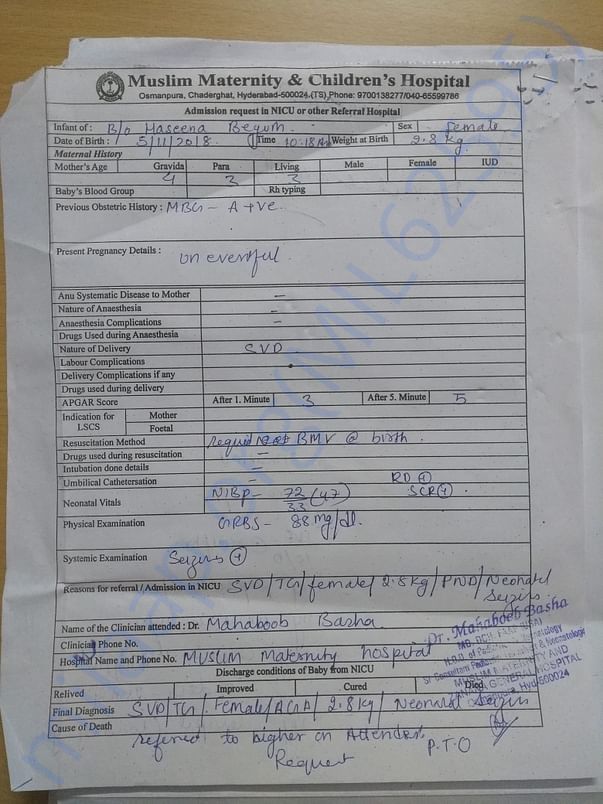 Muslim Maternity & Children's Hospital
Osmanpura, Chaderghat, Hyderabad-500024.(TS), Phone: 9700138277/040-65599786
Admission request in NICU or other Referral Hospital
Infant of : B/o Haseena Begum. Sex female
Date of Birth : 5/11/2018 Time 10.18 Am Weight at Birth 2.8 kg
Maternal History
Mother's Age Gravida Para Living Male Female IUD
4 3 3
Baby's Blood Group Rh typing
Previous Obstetric History : MBG - A +ve
Present Pregnancy Details : un eventful.
Anu Systematic Disease to Mother -
Nature of Anaesthesia -
Anaesthesia Complications -
Drugs Used during Anaesthesia
Nature of Delivery SVD
Labour Complications
Delivery Complications if any
Drugs used during delivery
APGAR Score After 1. Minute 3 After 5. Minute 5
Indication for LSCS Mother
Foetal
Resuscitation Method BMV @ birth.
Drugs used during resuscitation -
Intubation done details -
Umbilical Cathetersation - RD +
Neonatal Vitals NIBP - 72/33 (47) SCR +
Physical Examination GRBS - 88 mg/dl.
Systemic Examination Seizures +
Reasons for referral / Admission in NICU SVD / TG / female / 2.8 kg / PND / Neonatal
Name of the Clinician attended : Dr. Mahaboob Basha
Dr. Mahaboob Basha
Clinician Phone No.
Hospital Name and Phone No. Muslim Maternity hospital
MUSLIM MATERNITY AND
GENERAL HOSPITAL
Hyd-500024
Discharge conditions of Baby from NICU
Relived Improved Cured Died
Final Diagnosis SVD / TG / Female / AGA / 2.8 kg / Neonatal
Cause of Death
referred to higher on Attenders
Request P.T.O
milaap.org(MIL62395)